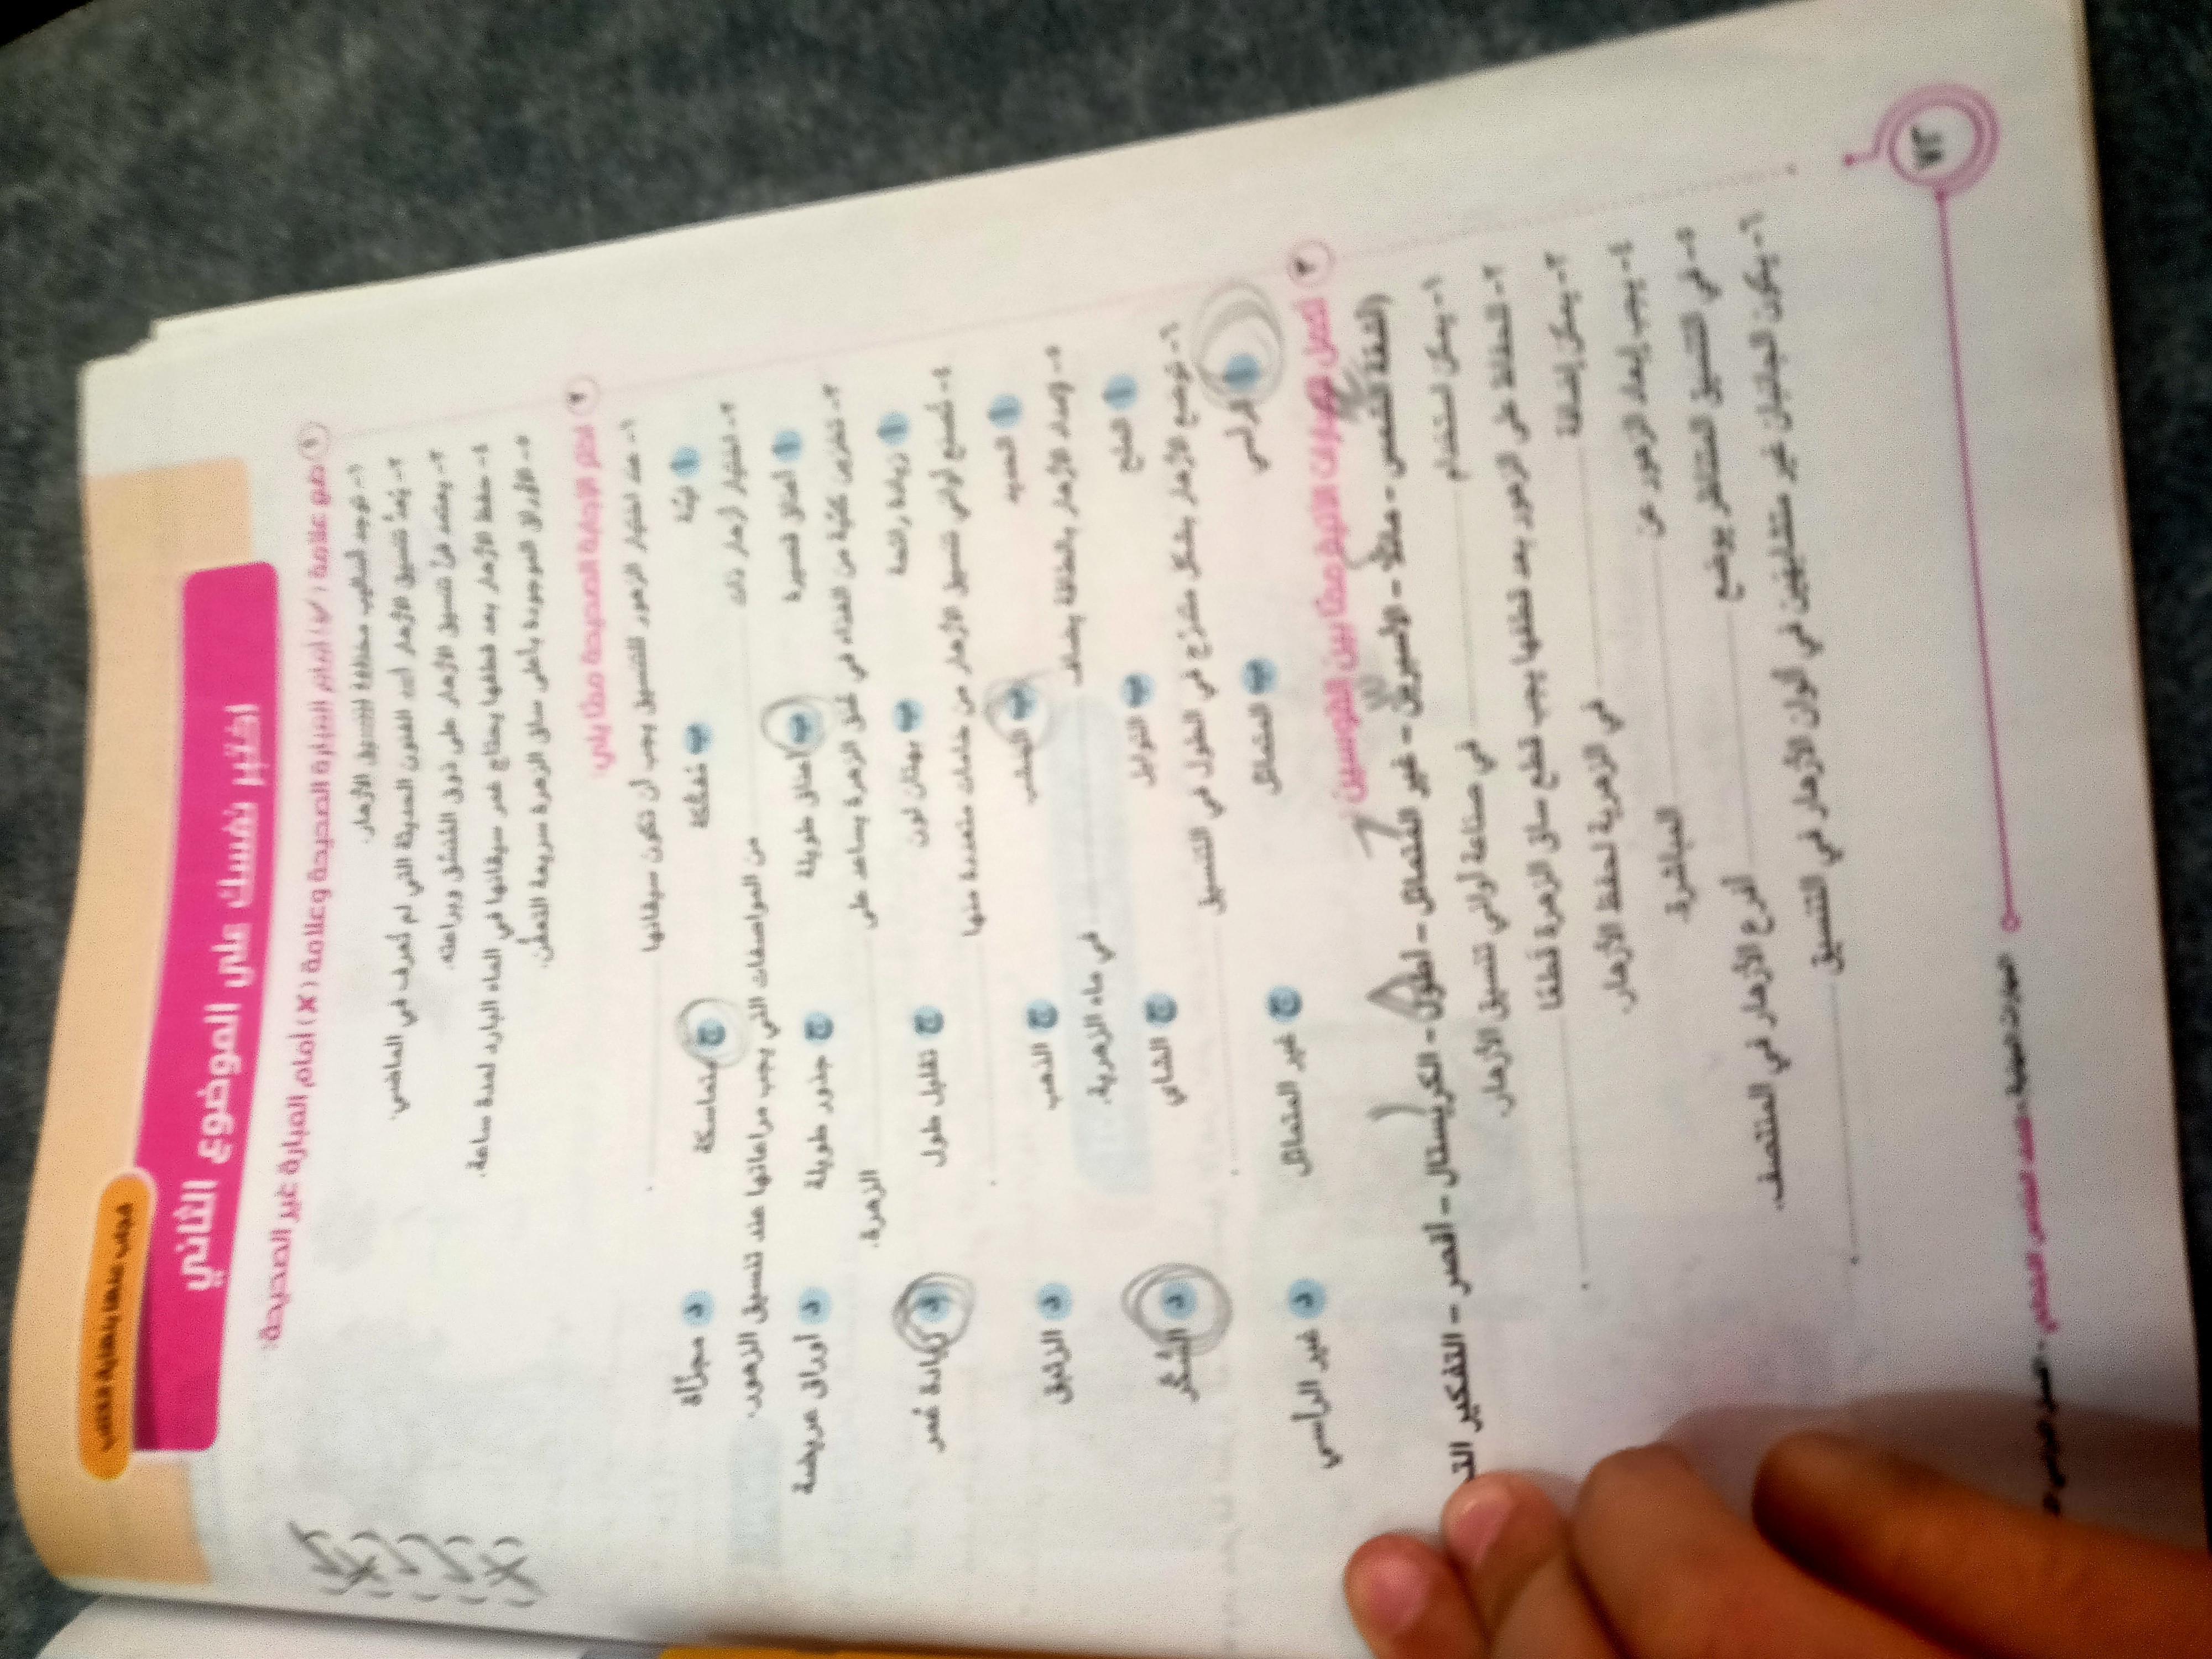 مجاب عنها بنهاية الكتاب
اختبر نفسك على الموضوع الثاني
١ ضع علامة (✓) أمام العبارة الصحيحة وعلامة (✗) أمام العبارة غير الصحيحة:
١- توجد أساليب مختلفة لتنسيق الأزهار. (✓)
٢- يُعدُّ تنسيق الأزهار أحد الفنون الحديثة التي لم تُعرف في الماضي. (✗)
٣- يعتمد فنُّ تنسيق الأزهار على ذوق المُنسِّق وبراعته. (✓)
٤- حفظ الأزهار بعد قطفها يحتاج غمر سيقانها في الماء البارد لمدة ساعة. (✓)
٥- الأوراق الموجودة بأعلى ساق الزهرة سريعة التعفُّن. (✗)
٢ اختر الإجابة الصحيحة ممَّا يلي:
١- عند اختيار الزهور للتنسيق يجب أن تكون سيقانها
أ ليِّنة ب مُفكَّكة ج متماسكة د مجزَّأة
٢- اختيار أزهار ذات من المواصفات التي يجب مراعاتها عند تنسيق الزهور.
أ أعناق قصيرة ب أعناق طويلة ج جذور طويلة د أوراق عريضة
٣- تخزين كمِّية من الغذاء في عُنق الزهرة يساعد على الزهرة.
أ زيادة رائحة ب بهتان لون ج تقليل طول د زيادة عُمر
٤- تُصنع أواني تنسيق الأزهار من خامات متعددة منها
أ الحديد ب الخشب ج الذهب د الزئبق
٥- لإمداد الأزهار بالطاقة يضاف في ماء الزهرية.
أ الملح ب التوابل ج الشاي د السُّكَّر
٦- توضع الأزهار بشكل متدرِّج في الطول في التنسيق
أ الرأسي ب المتماثل ج غير المتماثل د غير الرأسي
٣ أكمل العبارات الآتية ممَّا بين القوسين:
(أشعَّة الشمس - مائلًا - الأسبرين - غير المتماثل - أطول - الكريستال - أقصر - التفكير
١- يمكن استخدام في صناعة أواني تنسيق الأزهار.
٢- للحفاظ على الزهور بعد قطفها يجب قطع ساق الزهرة قطعًا
٣- يمكن إضافة في الزهرية لحفظ الأزهار.
٤- يجب إبعاد الزهور عن المباشرة.
٥- في التنسيق المتناظر يوضع أفرع الأزهار في المنتصف.
٦- يكون الجانبان غير متشابهين في ألوان الأزهار في التنسيق
٧٢